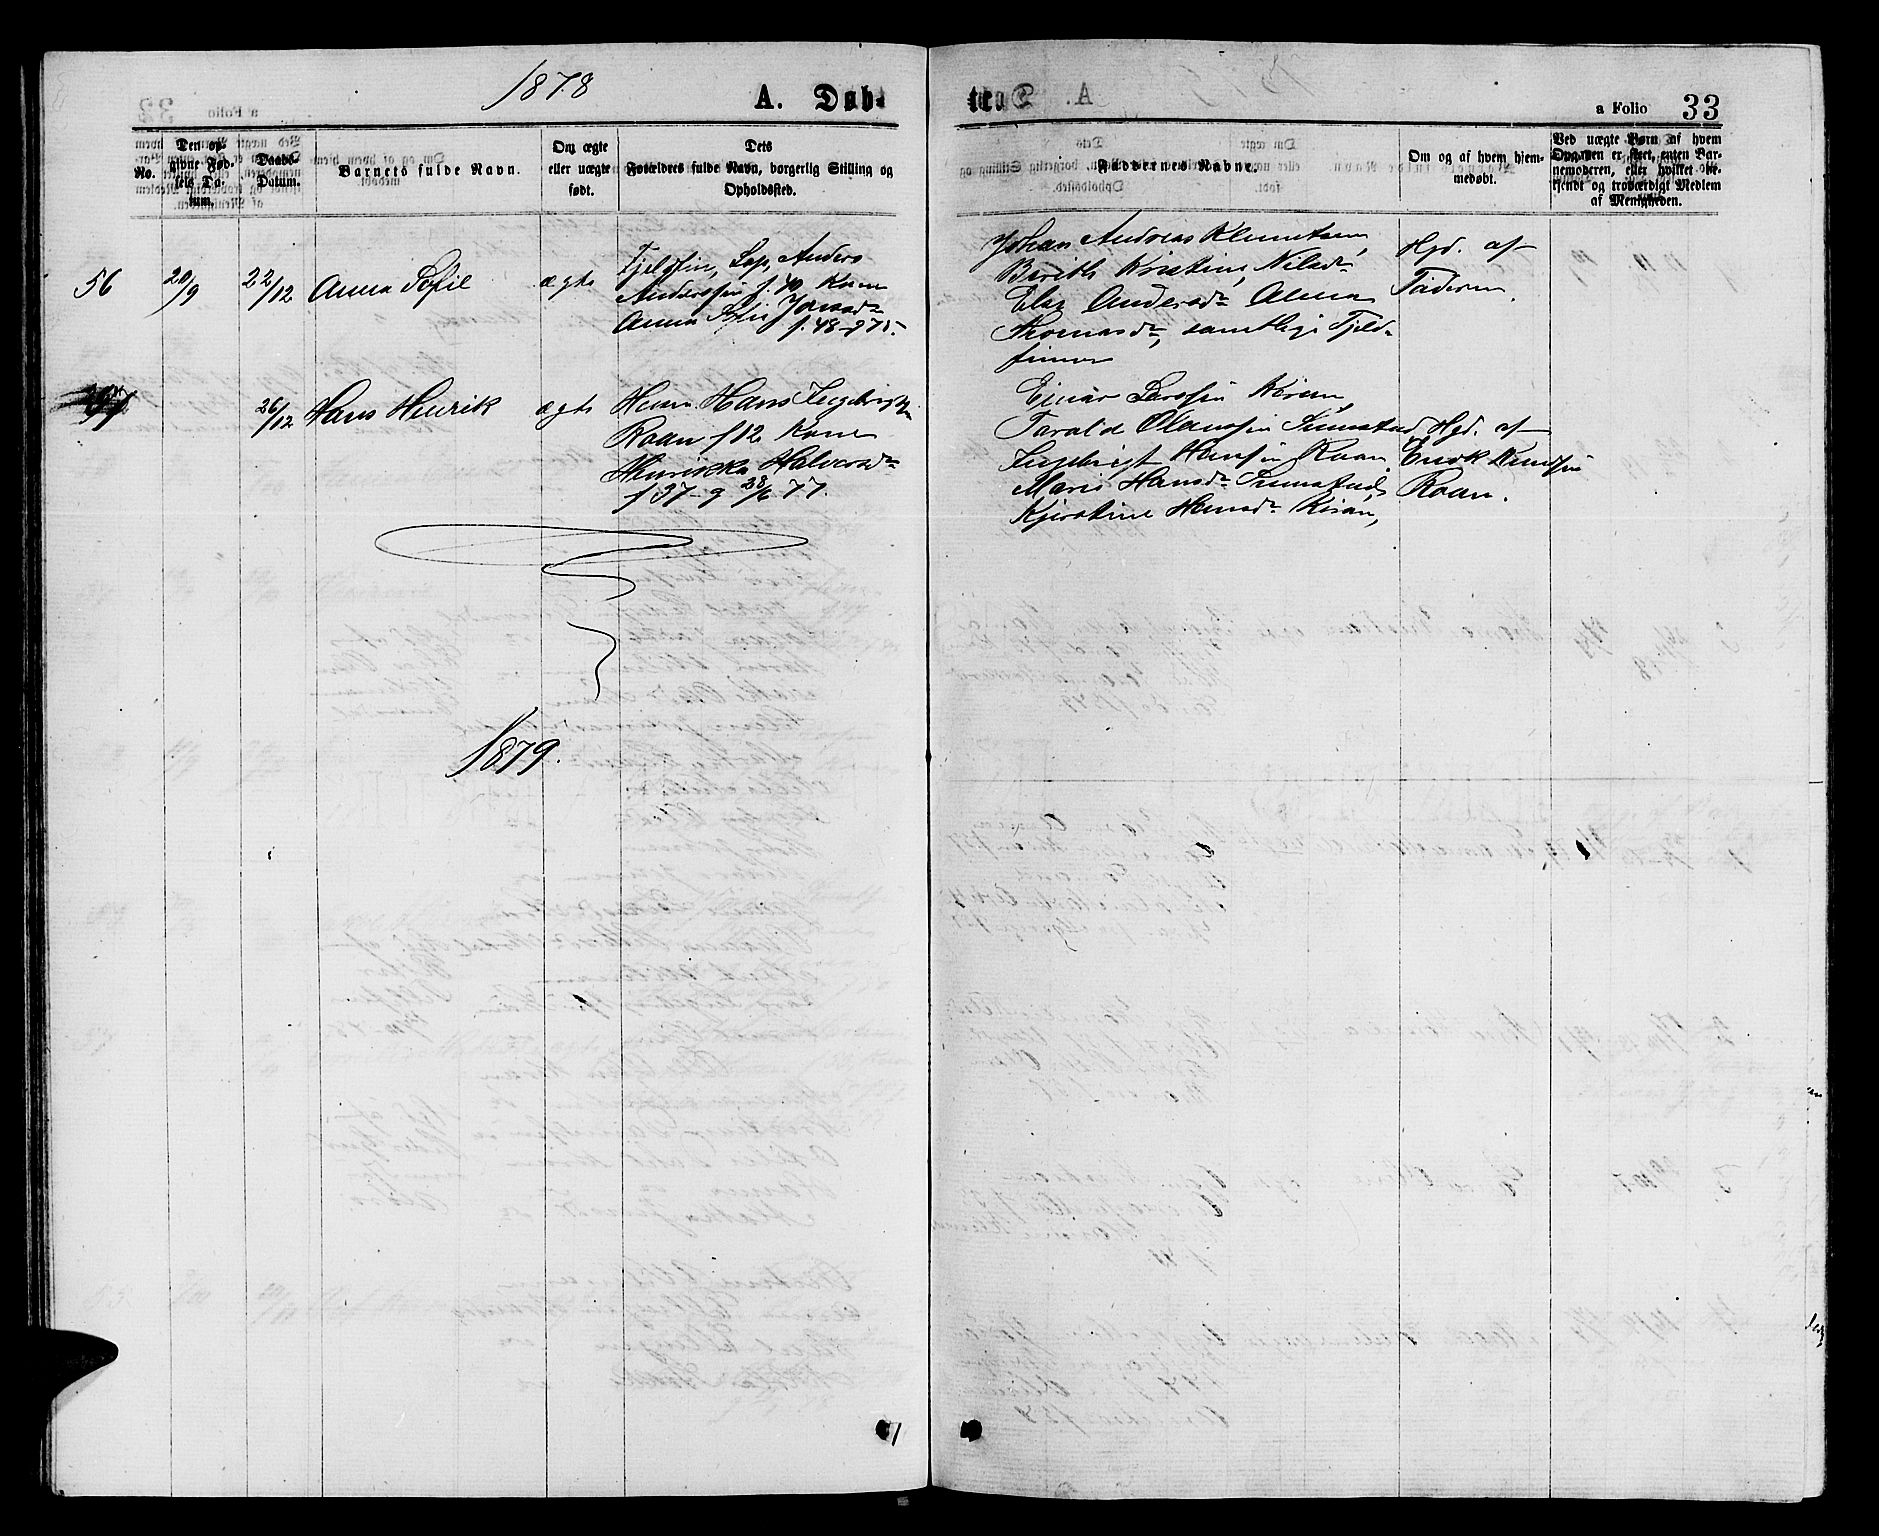 1878
A. Døb-
te
a Folio 33
No.
Den op-
givne Fød-
sels Da-
tum.
Daabs-
Datum.
Barnets fulde Navn.
Om ægte
eller uægte
født.
Dets
Forældres fulde Navn, borgerlig Stilling og
Opholdssted.
Faddernes Navne.
Om og af hvem hjem-
medøbt.
Ved uægte Børn af hvem
Opgaven er skeet, enten Bar-
nemoderen, eller hvilket be-
kjendt og troværdigt Medlem
af Menigheden.
56
20/9
22/12
Anna Sofie
ægte
Fjeldfin, Lap, Anders
Andersen f. 40 Kone
Anna Jonasdr
f. 48 - g 75.
Johan Andreas Klemetsen,
Berith Kristine Nilsdr
Elen Andersdr Anna
Thomasdr, samtlige Fjeld-
finner
Hjd. af
Faderen.
57
26/12
Hans Henrik
ægte
Huusm. Hans Ingebrigtsen
Roan f12 Kone
Henrikka Halvorsdr
f 37 - g 28/6 77.
Einar Larsen Kiran,
Tarald Olaussen Sumstad,
Ingebrigt Hansen Roan
Marie Hansdr Sumstad,
Kjerstine Hansdr Kiran,
Hjd. af
Erik Knudsen
Roan.
1879.